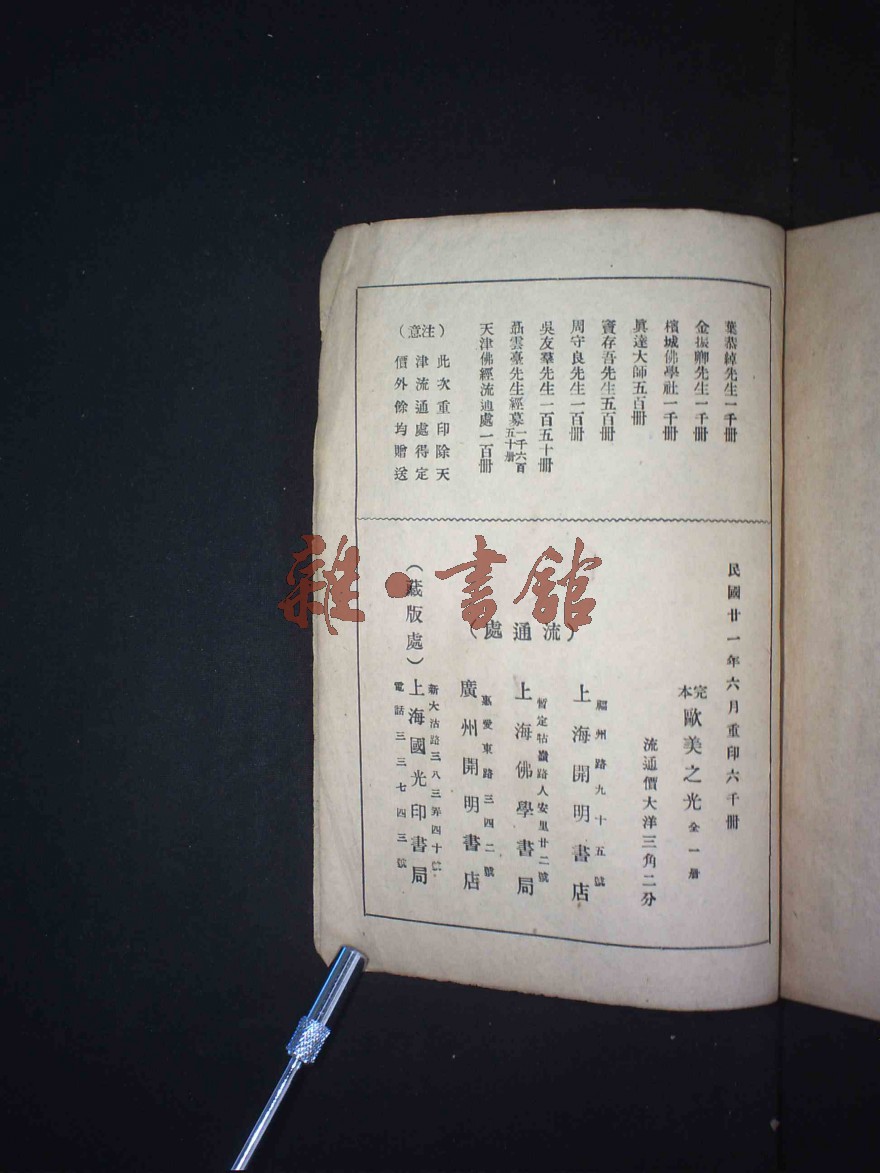 葉恭綽先生一千冊
金振卿先生一千冊
檳城佛學社一千冊
眞達大師五百冊
竇存吾先生五百冊
周守良先生一百冊
吳友羣先生一百五十冊
聶雲臺先生經募一千六百五十册
天津佛經流通處一百冊
（注意）
此次重印除天
津流通處得定
價外餘均贈送
民國廿一年六月重印六千冊
完本歐美之光 全一册
流通價大洋三角二分
（流通處）
福州路九十五號
上海開明書店
暫定牯嶺路人安里廿二號
上海佛學書局
惠愛東路三四二號
廣州開明書店
（藏版處）
新大沽路三八三弄四十號
上海國光印書局
電話三三七四三號
雜·書館